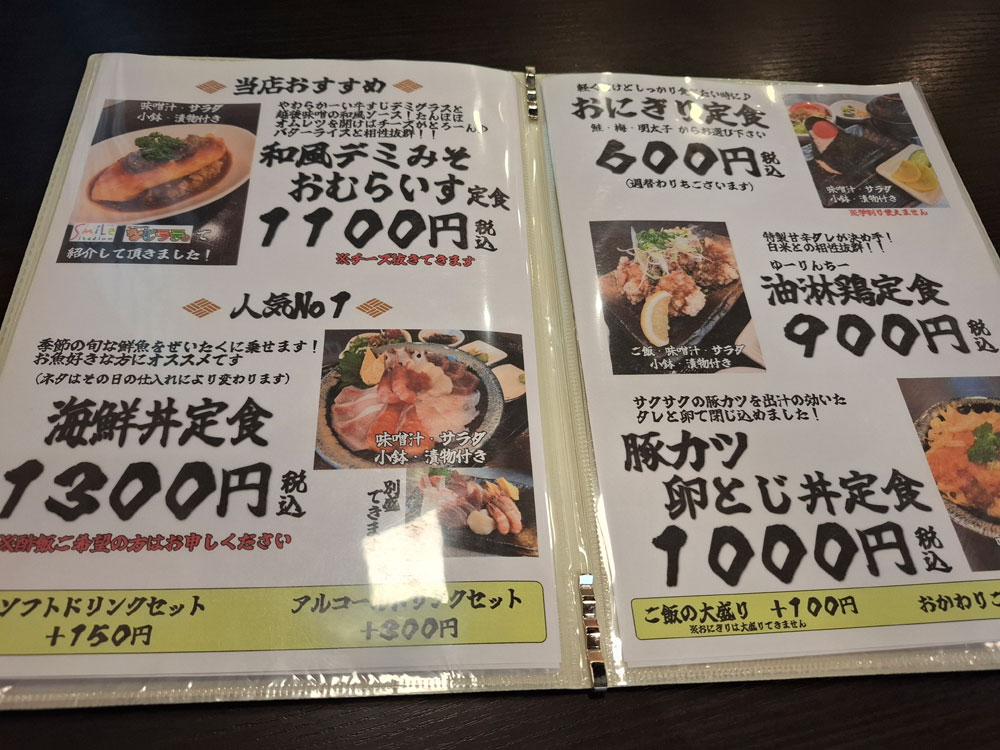 当店おすすめ
味噌汁・サラダ
小鉢・漬物付き
やわらかーい牛すじデミグラスと
越後味噌の和風ソース!たんぽぽ
オムレツを開けばチーズがとろーん♪
バターライスと相性抜群!!
和風デミみそ
おむらいす定食
1100円税込
※チーズ抜きできます
Smile
Stadium
で
紹介して頂きました!
人気No1
季節の旬な鮮魚をぜいたくに乗せます!
お魚好きな方にオススメです
(ネタはその日の仕入れにより変わります)
海鮮丼定食
1300円税込
味噌汁・サラダ
小鉢・漬物付き
別盛
できま
※酢飯ご希望の方はお申しください
ソフトドリンクセット
+150円
アルコールドリンクセット
+300円
軽く だけどしっかり食べたい時に♪
おにぎり定食
鮭・梅・明太子 からお選び下さい
600円税込
(週替わりもございます)
味噌汁・サラダ
小鉢・漬物付き
※学割り使えません
特製甘辛ダレが決め手!
白米との相性抜群!!
ゆーりんちー
油淋鶏定食
900円税込
ご飯・味噌汁・サラダ
小鉢・漬物付き
サクサクの豚カツを出汁の効いた
タレと卵で閉じ込めました!
豚カツ
卵とじ丼定食
1000円税込
ご飯の大盛り +100円
※おにぎりは大盛りできません
おかわりご